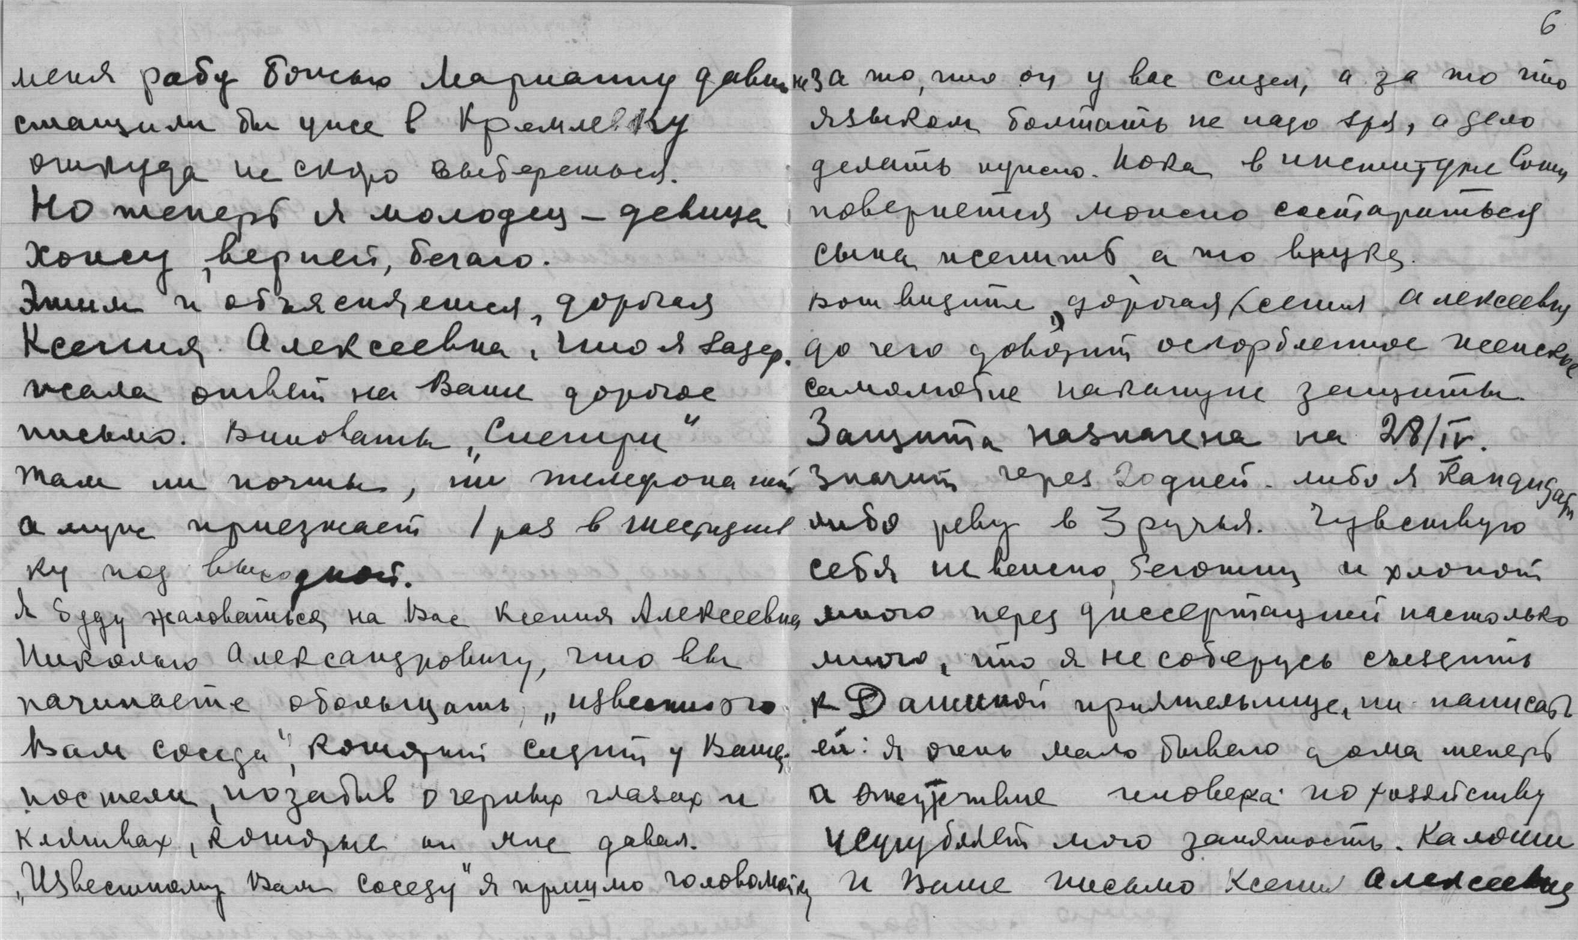 меня рабу божью Марианну давно
стащили бы уже в Кремлевку
откуда не скоро выберешься.
Но теперь я молодец – девица
хожу, верней, бегаю.
Этим и объясняется, дорогая
Ксения Алексеевна, что я задер.
жала ответ на Ваше дорогое
письмо. Виноваты „Снегири"
там ни почты, ни телефона нет
а муж приезжает 1 раз в шестидне
ку под выходной.
Я буду жаловаться на Вас Ксения Алексеевна
Николаю Александровичу, что вы
начинаете обольщать „известного
Вам соседа", который сидит у Вашей
постели, позабыв о черных глазах и
клятвах, которые он мне давал.
„Известному Вам соседу" я пришлю головомойку
6
не за то, что он у вас сидел, а за то что
языком болтать не надо зря, а дело
делать нужно. Пока в институте
повернется можно состариться
сына женить а то внука.
Вот видите, дорогая Ксения Алексеевна
до чего доводит оскорбленное женское
самолюбие накануне защиты.
Защита назначена на 28/IV.
Значит через 20 дней либо я кандидат
либо реву в 3 ручья. Чувствую
себя неважно, беготни и хлопот
много перед диссертацией настолько
много, что я не соберусь съездить
к Дашиной приятельнице, ни написать
ей: я очень мало бываю дома теперь
а отсутствие человека по хозяйству
усугубляет мою занятость. Калоши
и Ваше письмо Ксения Алексеевна